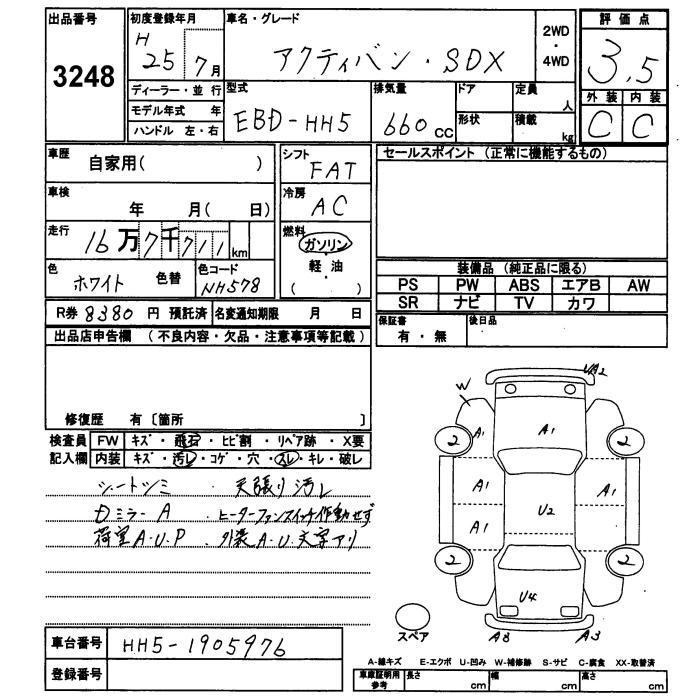 出品番号
3248
初度登録年月
H 25年 7月
車名・グレード
アクティバン・SDX
2WD
・
4WD
評価点
3.5
外装 内装
C C
ディーラー・並行
モデル年式 年
ハンドル 左・右
型式
EBD-HH5
排気量
660 cc
ドア
形状
定員
人
積載
kg
車歴
自家用( )
シフト
FAT
セールスポイント (正常に機能するもの)
車検
年 月( 日)
冷房
AC
走行
16万7千711km
燃料
ガソリン
・
軽・油
( )
色
ホワイト
色替
色コード
NH578
装備品 (純正品に限る)
PS PW ABS エアB AW
SR ナビ TV カワ
R券 8380 円 預託済
名変通知期限 月 日
保証書
有・無
後日品
出品店申告欄 (不良内容・欠品・注意事項等記載)
修復歴 有〔箇所 〕
検査員
記入欄
FW キズ・飛石・ヒビ割・リペア跡・X要
内装 キズ・汚レ・コゲ・穴・スレ・キレ・破レ
シートシミ ・天張り汚レ
Dミラー A ・ヒーターファンスイッチ作動せず
荷室 A.U.P ・外装 A.U.文字アリ
車台番号
HH5-1905976
登録番号
UA2
W
2
A1
A1
2
A1
A1
A1
U2
2
U4
2
スペア
A3
A3
A-線キズ E-エクボ U-凹み W-補修跡 S-サビ C-腐食 XX-取替済
車庫証明用
参考
長さ
cm
幅
cm
高さ
cm